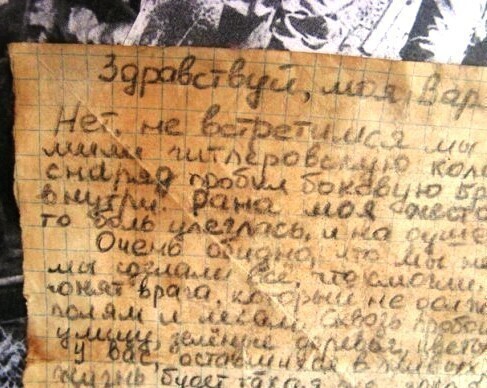 Здравствуй, моя Вар
Нет, не встретимся мы
гитлеровскую коло
снаряд пробил боковую бр
внутри. Рана моя жесто
то боль улеглась, и на душе
Очень обидно, что мы не
мы сделали все, что смогли.
гонят врага, который не долж
полям и лесам. Сквозь пробои
улицу, зелёные деревья, цветы
У вас, оставшихся в живых,
жизнь будет такая